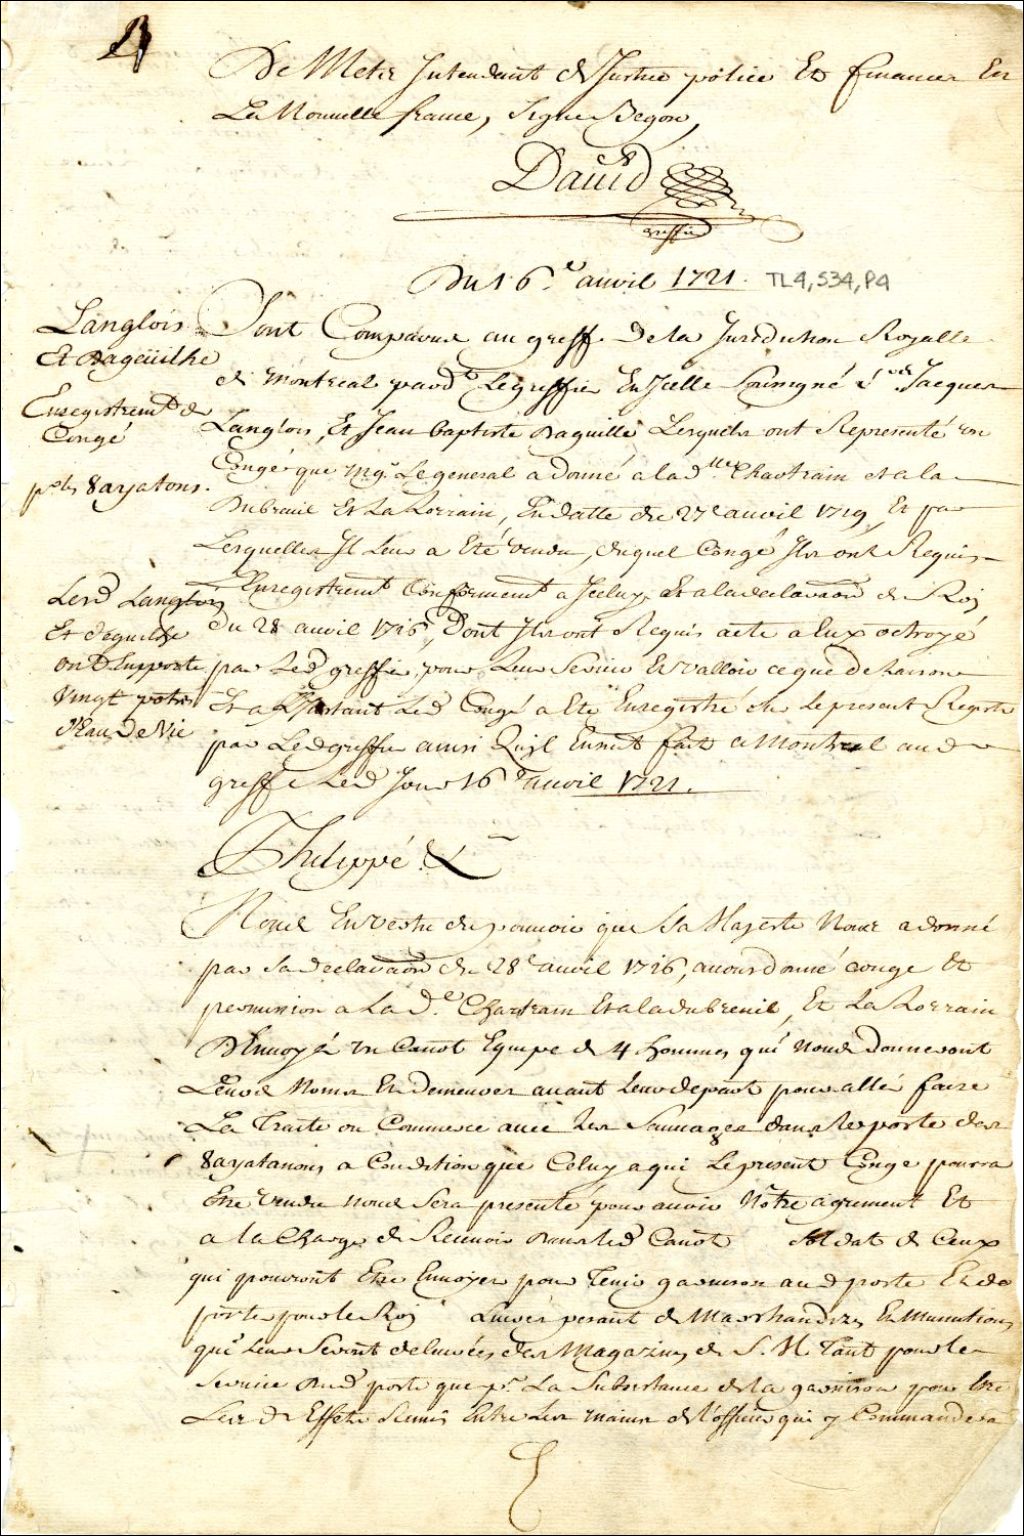 De Metz Intendant de Justice police Et finances En
La Nouvelle france, Signé Begon,
David
greffier
Du 16.e auril 1721. TL4, S34, P4
Langlois
Et Dageüilhe
Enregistremt de
Congé
p.r les 8ayatons.
Sont Comparus au greff. De la Jurisdiction Royalle
de montreal pard.t Le greffier En Icelle Soussigné Jacques
Langlois, Et Jean baptiste Daguille Lesquels ont Representé un
Congé que mgr. Le general a donné a la dlle. Chartrain et a la
Dubreuil Et La Lorrain, En datte du 27e auril 1719, Et par
Lesquelles Il Leur a Eté vendu, duquel Congé Ils ont Requis
L'Enregistremt Conformemt a Iceluy, Et a la declaraon du Roy
du 28 auril 1716, Dont Ils ont Requis acte a Eux octroyé
par Led greffier, pour Leur Seruir Et valloir ce que de haison
Et a L'Jnstant Led Congé a Eté Enregistré Le present Registre
par Led greffier ainsi Qu'jl Ensuit fait a Montreal aud
greffe Led Jour 16e auril 1721.
Les d Langlois
Et daguilhe
ont Supporte
Vingt pots
d'Eau De Vie
Philippe &
Nous En Vertu du pouuoir que Sa Majesté Nous a donné
par Sa declaraon du 28e auril 1716, auons donné conge Et
permission a La De. Chartrain Et a la dubreuil, Et La Lorrain
D'Enuoyé un Canot Equipe de 4 hommes qui Nous donneront
Leurs Noms Et demeures auant Leur depart pour allé faire
La Traite ou Commerce auec Les Sauuages dans Le poste des
8ayatanons a Condition que Celuy a qui Le present Congé pourra
Etre Vendu nous Sera presenté pour auoir Nôtre agrement Et
a la Charge de Receuoir dans led Canot Soldat de Ceux
qui pouront Etre Enuoyer pour Tenir garnison aud poste Et de
porter pour le Roy Liures pesant de Marchandises Et Munitions
qui Leur Seront deliurées des Magazins de S. M. Tant pour le
Seruice dud poste que pr. La Subsistance de la garnison pour Etre
Les d Effets Remis Entre Les mains de l'officier qui y Commandera